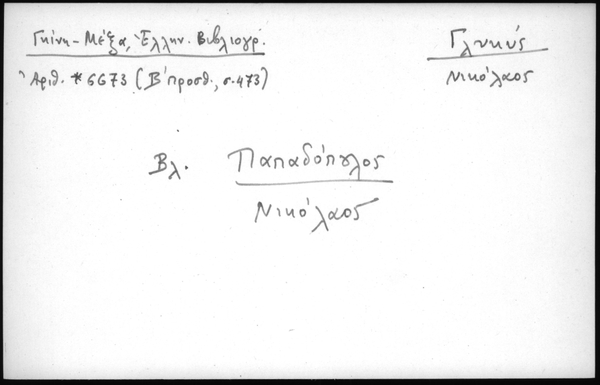 Γκίνη-Μέξα, Ἑλλην. Βιβλιογρ.
Ἀριθ. *6673 (Β' προσθ., σ. 473)
Γλυκύς
Νικόλαος
Βλ. Παπαδόπουλος
Νικόλαος